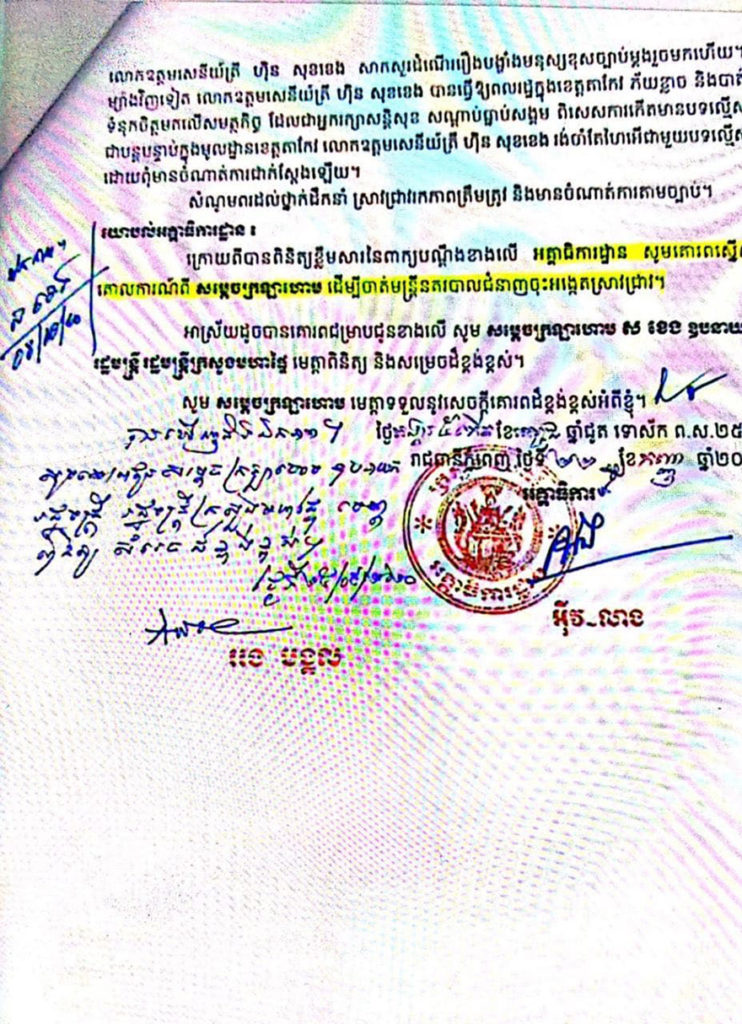 លោកឧត្តមសេនីយ៍ត្រី ហ៊ិន សុខខេង សាកសួរដំណើររឿងបង្ហាំងមនុស្សខុសច្បាប់ម្តងរួចមកហើយ។
ម្យ៉ាងវិញទៀត លោកឧត្តមសេនីយ៍ត្រី ហ៊ិន សុខខេង បានធ្វើឱ្យពលរដ្ឋក្នុងខេត្តតាកែវ ភ័យខ្លាច និងបាត់
ទំនុកចិត្តមកលើសមត្ថកិច្ច ដែលជាអ្នករក្សាសន្តិសុខ សណ្តាប់ធ្នាប់សង្គម ពិសេសការកើតមានបទល្មើស
ជាបន្តបន្ទាប់ក្នុងមូលដ្ឋានខេត្តតាកែវ លោកឧត្តមសេនីយ៍ត្រី ហ៊ិន សុខខេង រង់ចាំតែហៃអើជាមួយបទល្មើស
ដោយពុំមានចំណាត់ការជាក់ស្តែងឡើយ។
សំណូមពរដល់ថ្នាក់ដឹកនាំ ស្រាវជ្រាវរកភាពត្រឹមត្រូវ និងមានចំណាត់ការតាមច្បាប់។
យោបល់អគ្គាធិការដ្ឋាន ៖
ក្រោយពីបានពិនិត្យខ្លឹមសារនៃពាក្យបណ្តឹងខាងលើ អគ្គាធិការដ្ឋាន សូមគោរពស្នើ
គោលការណ៍ពី សម្តេចក្រឡាហោម ដើម្បីចាត់មន្ត្រីនគរបាលជំនាញចុះអង្កេតស្រាវជ្រាវ។
អាស្រ័យដូចបានគោរពជម្រាបជូនខាងលើ សូម សម្តេចក្រឡាហោម ស ខេង ឧបនាយ
រដ្ឋមន្ត្រី រដ្ឋមន្ត្រីក្រសួងមហាផ្ទៃ មេត្តាពិនិត្យ និងសម្រេចដ៏ខ្ពង់ខ្ពស់។
សូម សម្តេចក្រឡាហោម មេត្តាទទួលនូវសេចក្តីគោរពដ៏ខ្ពង់ខ្ពស់អំពីខ្ញុំ។
ថ្ងៃ ខែ ឆ្នាំជូត ទោស័ក ព.ស.២៥
រាជធានីភ្នំពេញ ថ្ងៃទី ២២ ខែ កញ្ញា ឆ្នាំ២០
អគ្គាធិការ
រដ្ឋមន្ត្រី រដ្ឋមន្ត្រីក្រសួងមហាផ្ទៃ មេត្តា
ពិនិត្យ សម្រេចដ៏ខ្ពង់ខ្ពស់
អគ្គាធិការដ្ឋាន
អ៊ីវ-លាង
អេង បង្គួល